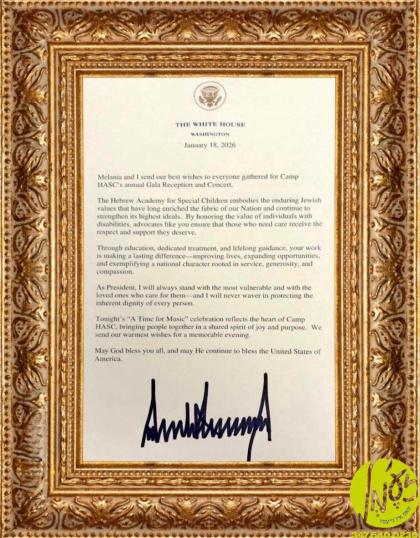 THE WHITE HOUSE
WASHINGTON
January 18, 2026
Melania and I send our best wishes to everyone gathered for Camp
HASC's annual Gala Reception and Concert.
The Hebrew Academy for Special Children embodies the enduring Jewish
values that have long enriched the fabric of our Nation and continue to
strengthen its highest ideals.  By honoring the value of individuals with
disabilities, advocates like you ensure that those who need care receive the
respect and support they deserve.
Through education, dedicated treatment, and lifelong guidance, your work
is making a lasting difference—improving lives, expanding opportunities,
and exemplifying a national character rooted in service, generosity, and
compassion.
As President, I will always stand with the most vulnerable and with the
loved ones who care for them—and I will never waver in protecting the
inherent dignity of every person.
Tonight's “A Time for Music” celebration reflects the heart of Camp
HASC, bringing people together in a shared spirit of joy and purpose.  We
send our warmest wishes for a memorable evening.
May God bless you all, and may He continue to bless the United States of
America.